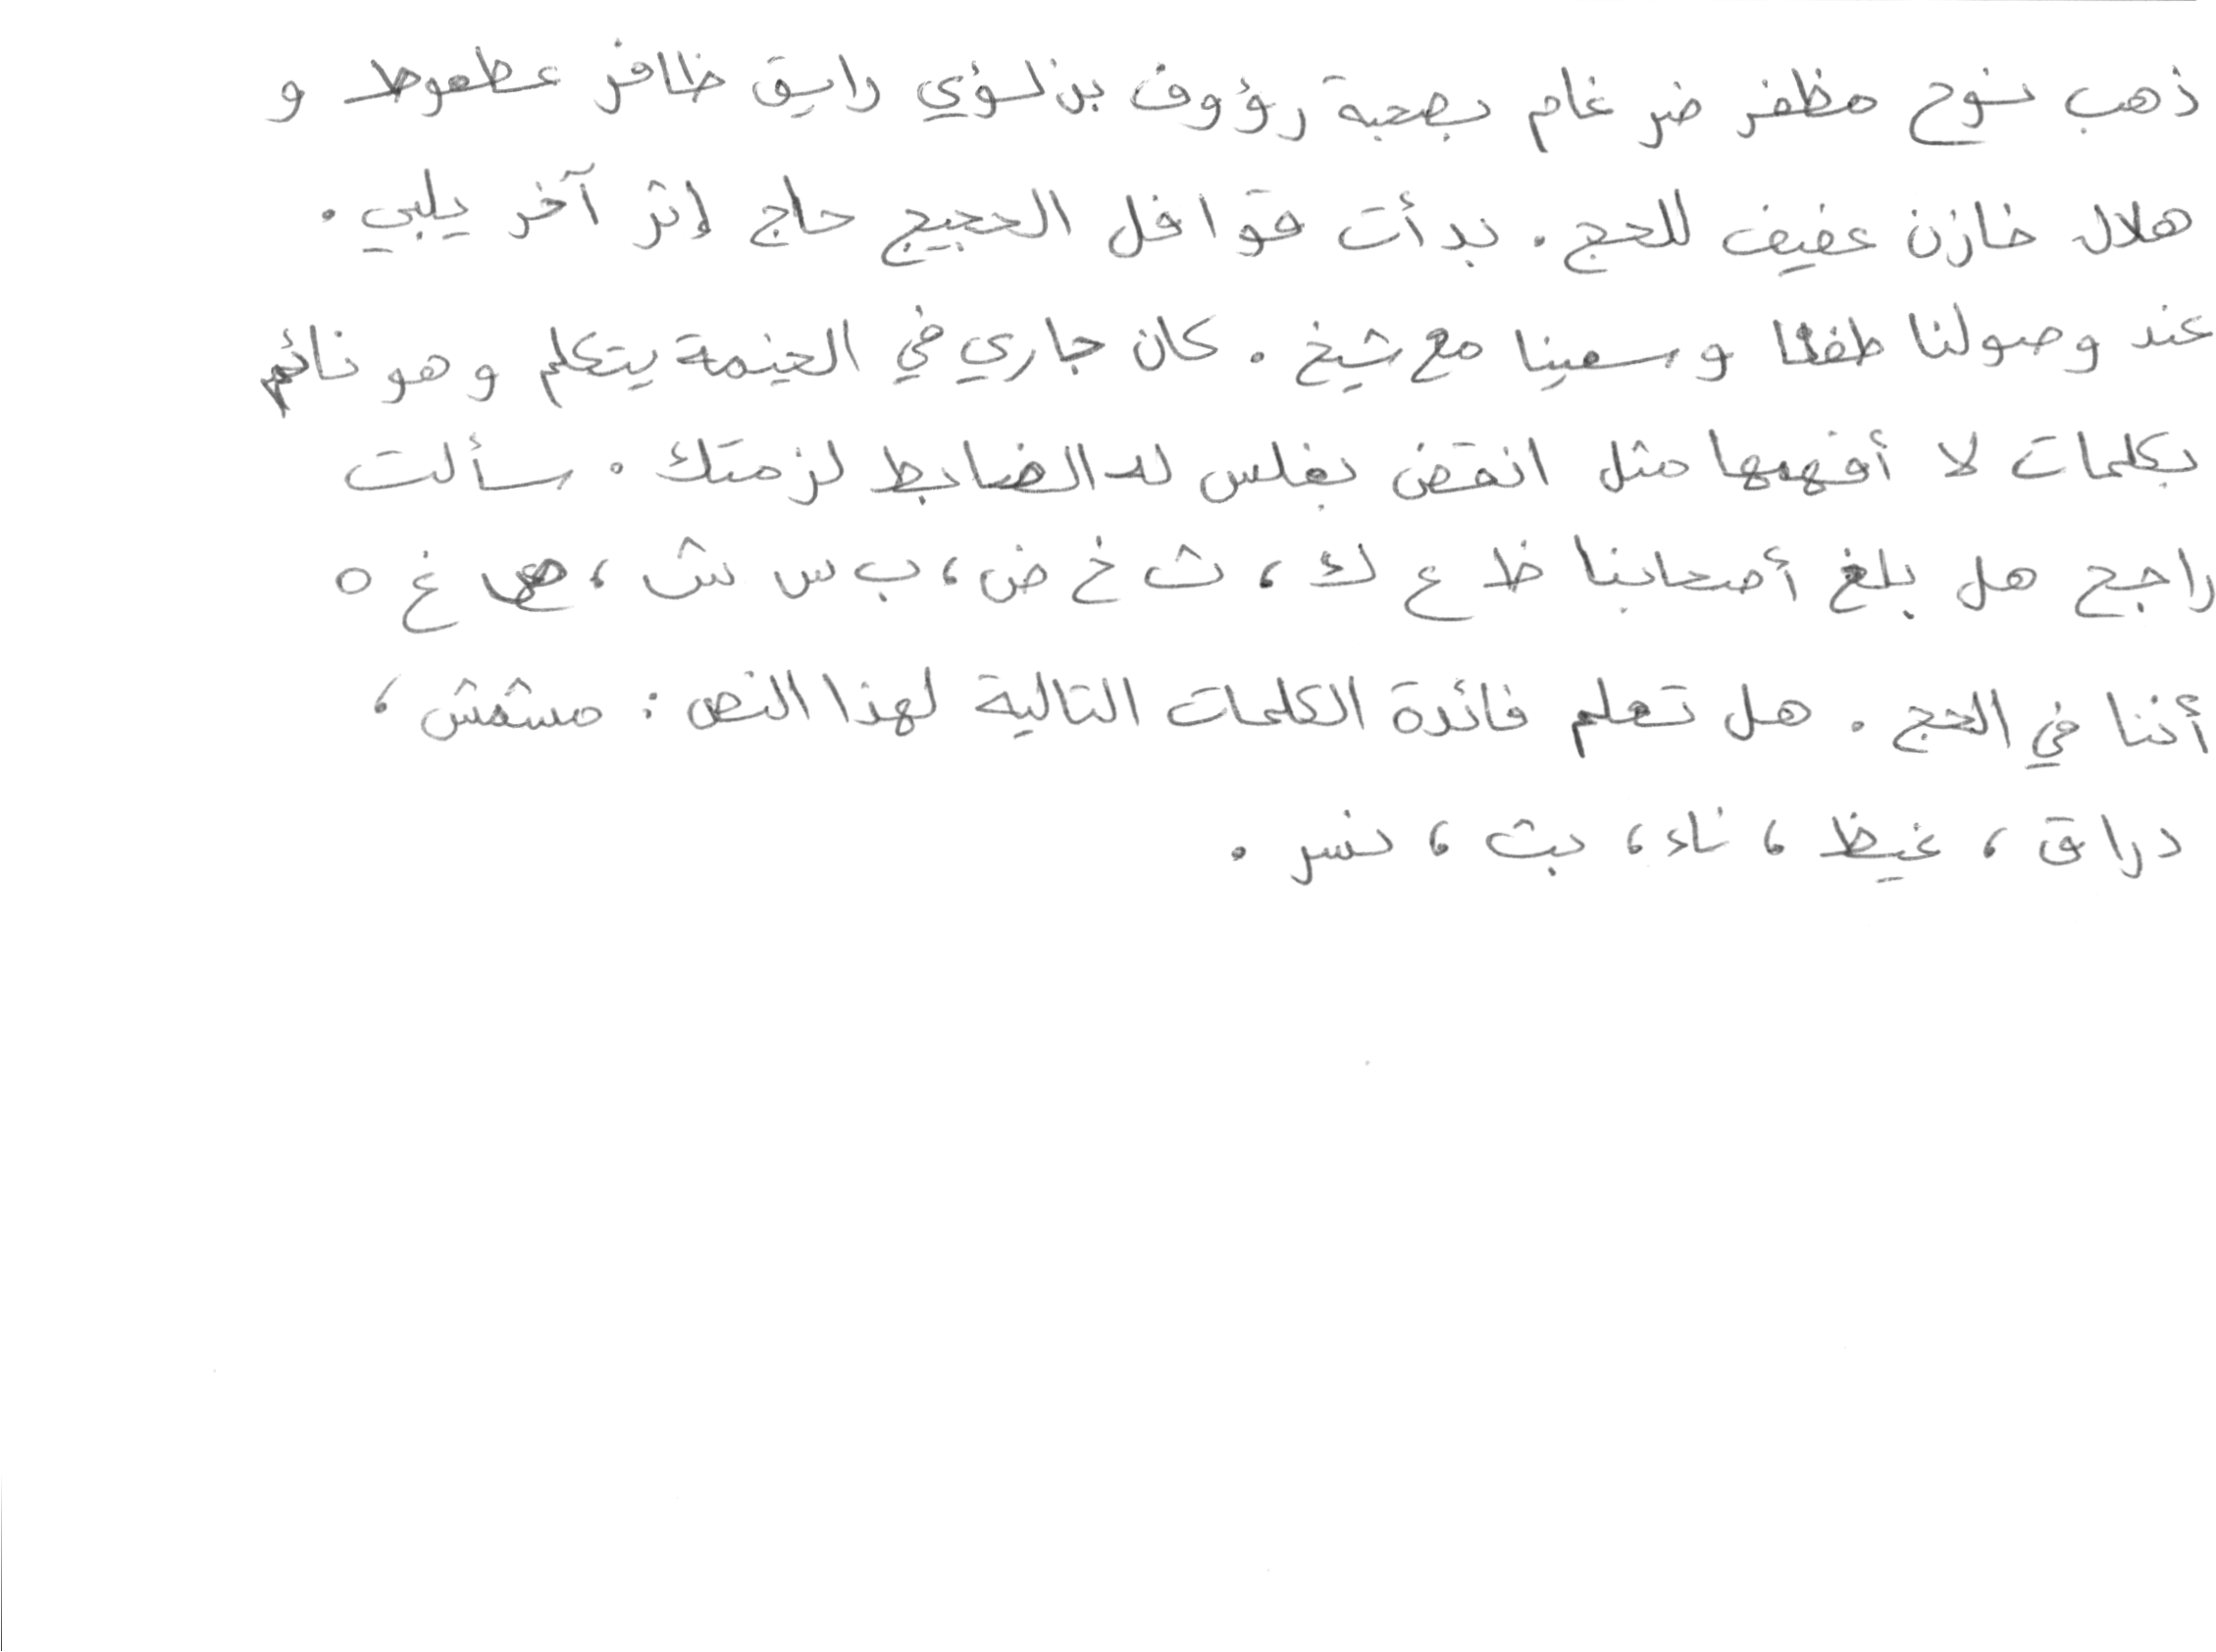 ذهب نوح مظفر ضرغام بصحبة رؤوف بن لؤي رايق ظافر عطعوط و
هلال خازن عفيف للحج. بدأت قوافل الحجيج حاج إثر آخر يلبي.
عند وصولنا طفنا وسعينا مع شيخ. كان جاري في الخيمة يتكلم وهو نائم
بكلمات لا أفهمها مثل انقض بغلس له الضابط لزمتك. سألت
راجح هل بلغ أصحابنا ظ ع ك، ث خ ض، ب س ش، ص غ ه
أننا في الحج. هل تعلم فائدة الكلمات التالية لهذا النص: مشمش،
دراق، غيظ، ناء، بث، نسر.